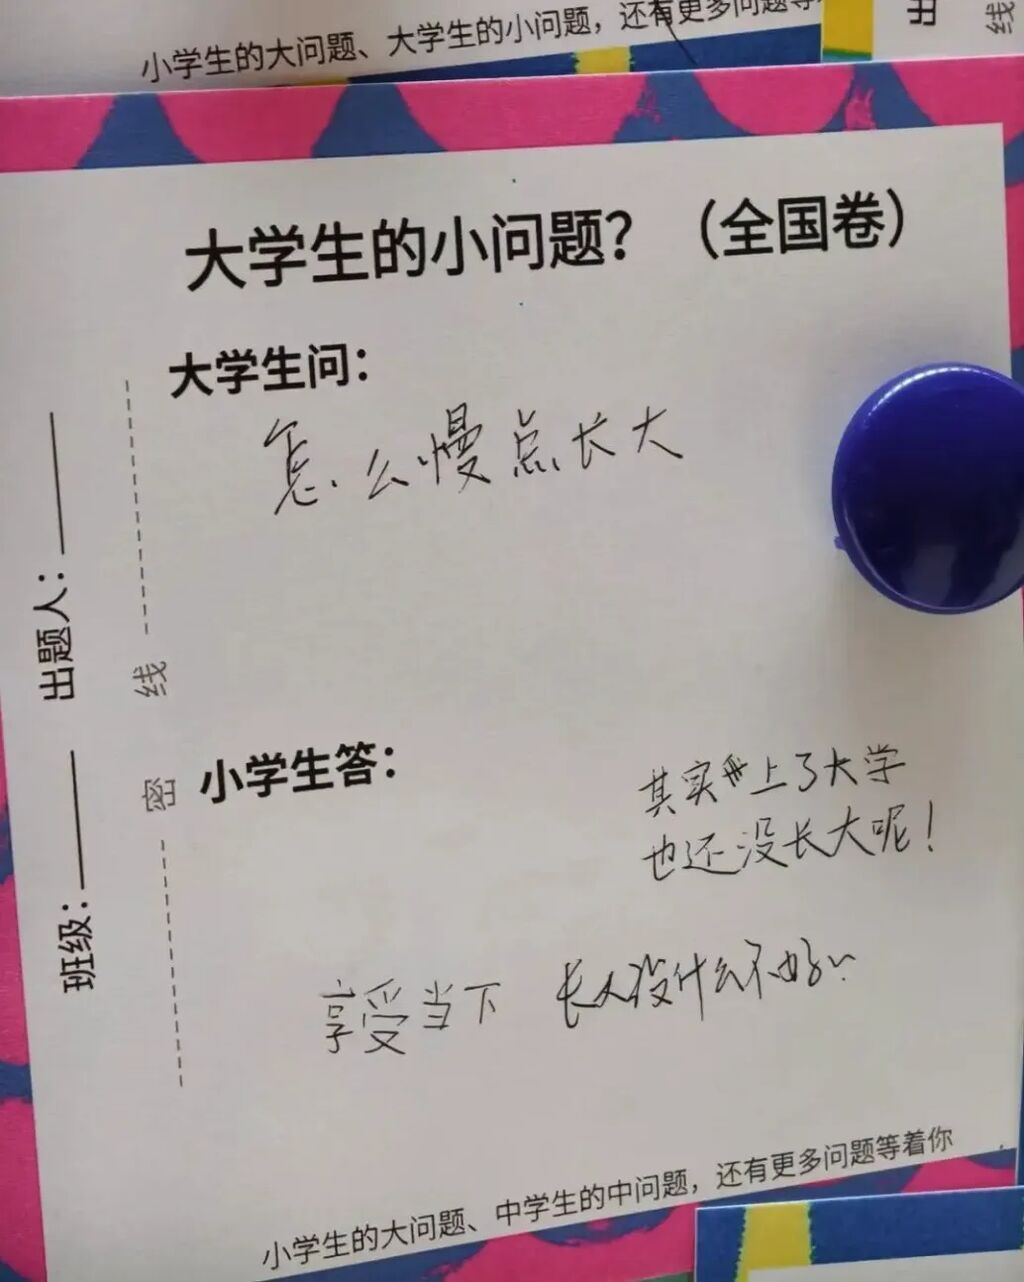 小学生的大问题、大学生的小问题，还有更多问题等
线
大学生的小问题？（全国卷）
大学生问：
怎么慢点长大
出题人：
线
密
小学生答：
其实上了大学
也还没长大呢！
班级：
享受当下 长大没什么不好
小学生的大问题、中学生的中问题，还有更多问题等着你